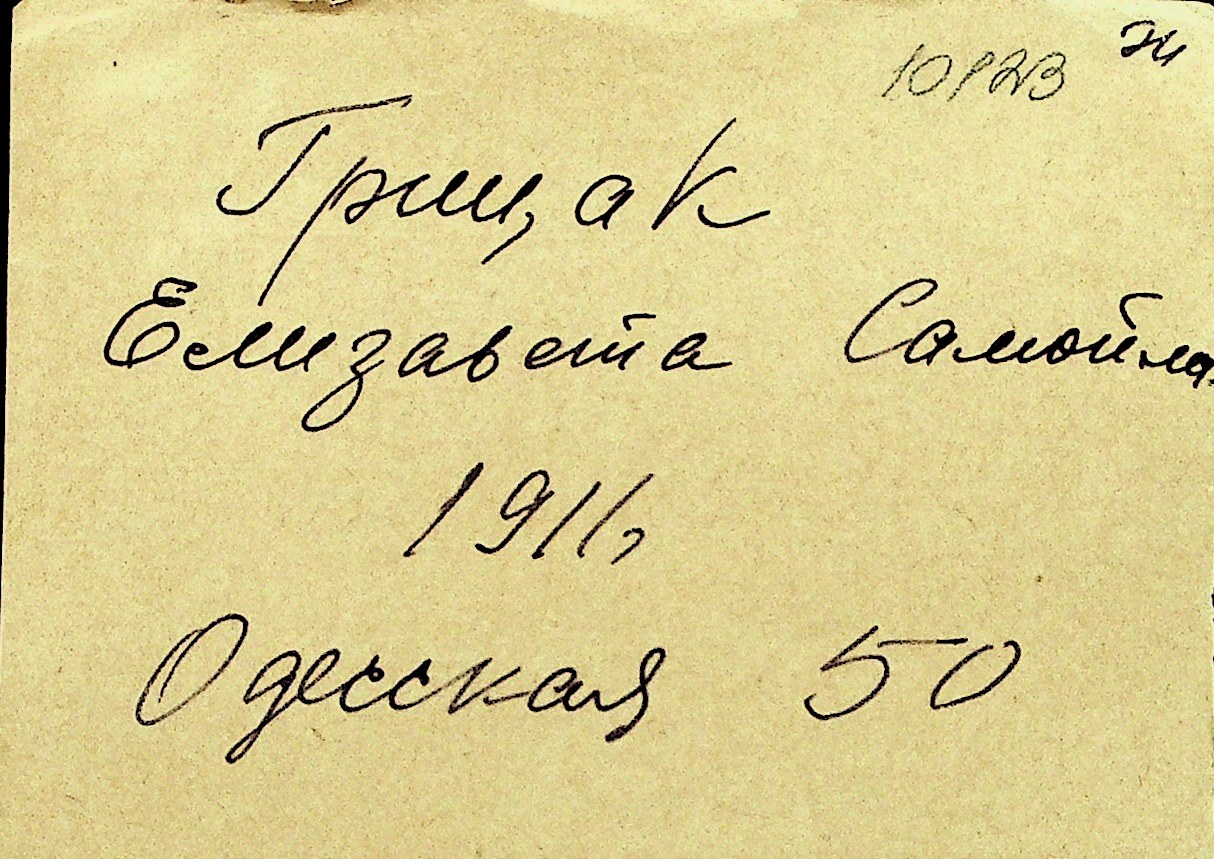 Грицак
Елизавета Самойла
1911,
Одесская 50